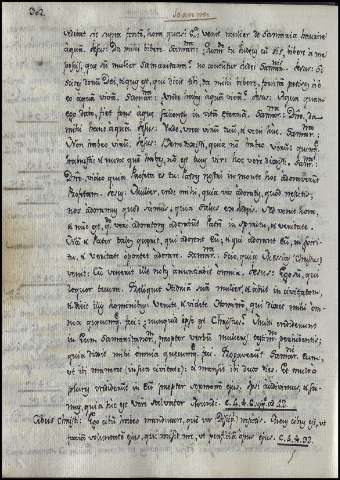 302.
Joannes
sedebat sic supra fontē, hora quasi 6ª. venit mulier de Samaria haurire
aquā. Jesus: Da mihi bibere. Samarna: Quom̄ tu Judæus cū sis, bibere a me
poscis, quæ sū mulier Samaritana? no coutuntur Judei Samar. Jesus: Si
scires donū Dei, & quis est, qui dicit tibi, da mihi bibere, forsitā petisses
eo aquā vivā. Samarna: Unde habes aquā vivā? Jesus: Aqua quam
ego dabo, fiet fons aquæ salientis in vitā eternā. Samarna: Dne, da
mihi hanc aquā. Jesus: Vade, voca virū tuū, & veni huc. Samarna:
Non habeo virū. Jesus: Bene dixisti, quia nō habeo virū: quinqe
habuisti & nunc quē habes, nō est tuus vir: hoc vere dixisti. Samrna:
Dne, video quia Propheta es tu: Patres nostri in monte hoc adoraverūt
Jesus: Mulier, crede mihi, quia vos adoratis, quod nescitis;
nos adoramus quod scimus, quia salus ex Judæis. Sed venit hora,
& nūc est, qn̄ veri adoratores adorabūt Patrē in spiritu, & veritate.
Nā & Pater tales quærit, qui adorent Eū, & qui adorant Eū, in spiri-
tu, & veritate oportet adorare. Samarna: Scio, quia Messias (Christus)
venit: Cū venerit ille nobis anuntiabit omnia. Jesus: Ego sū, qui
loquor tecum. Reliquit Hidriā suā mulier, & abiit in civitatem,
& dicit illis hominibus: Venite & videte Hominē, qui dixit mihi om-
nia quæcumq. feci: nunquid ipse est Christus? Multi crediderunt
in Eum Samaritanorum, propter verbū mulieris testimm perhibentis,
quia dixit mihi omnia quæcumq. feci. Rogaverunt Samarni Eum,
ut ibi maneret (in sua civitate): & mansit ibi duos dies. Et multo
plures crediderunt in Eū propter sermonē ejus. Ipsi audivimus, & sci-
mus, quia hic est vere Salvator Mundi. C. 4.
Cibus Christi: Ego cibū habeo manducare, quē vos nescitis. Meus cibus est, ut
faciā voluntatē ejus, qui misit me, ut perficiā opus ejus. C. 4.